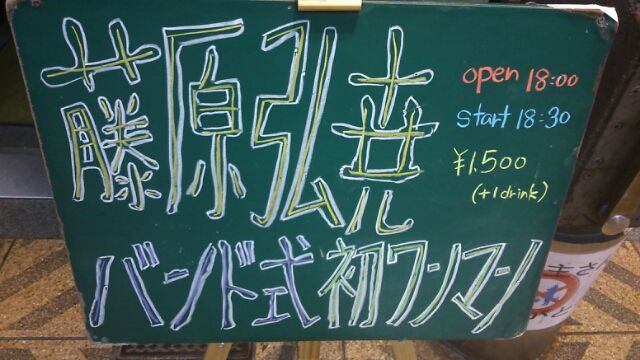 藤原弘尭
バンド式 初ワンマン
open 18:00
start 18:30
¥1,500
(+1drink)